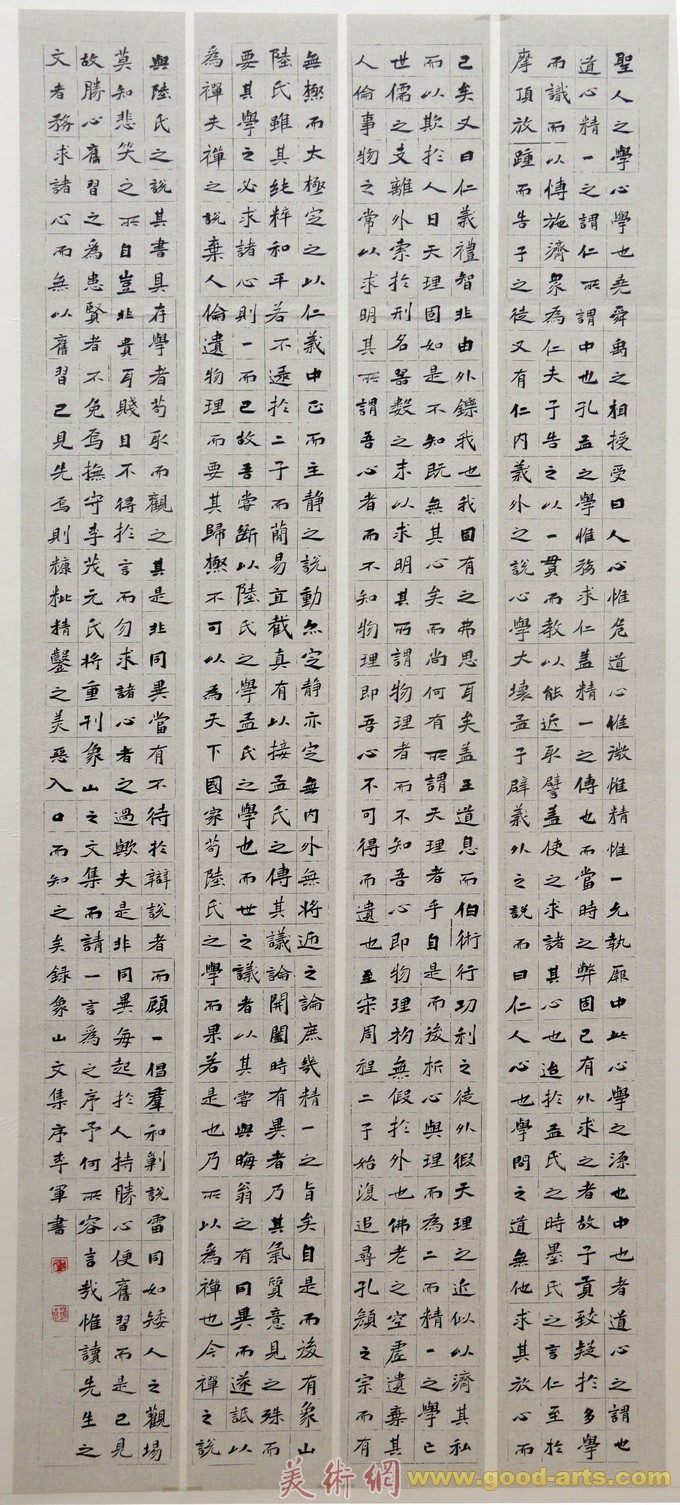 聖人之學心學也堯舜禹之相授受曰人心惟危道心惟微惟精惟一允執厥中此心學之源也中也者道心之謂也
道心精一之謂仁所謂中也孔孟之學惟務求仁蓋精一之傳也而當時之弊固已有外求之者故子貢致疑於多學
而識而以博施濟眾為仁夫子告之以一貫而教以能近取譬蓋使之求諸其心也迨於孟氏之時墨氏之言仁至於
摩頂放踵而告子之徒又有仁內義外之說心學大壞孟子辟義外之說而曰仁人心也學問之道無他求其放心而
已矣又曰仁義禮智非由外鑠我也我固有之弗思耳矣蓋王道息而伯術行功利之徒外假天理之近似以濟其私
而以欺於人曰天理固如是不知既無其心矣而尚何有所謂天理者乎自是而後析心與理而為二而精一之學亡
世儒之支離外索於刑名器數之末以求明其所謂物理者而不知吾心即物理初無假於外也佛老之空虛遺棄其
人倫事物之常以求明其所謂吾心者而不知物理即吾心不可得而遺也至宋周程二子始復追尋孔顏之宗而有
無極而太極定之以仁義中正而主静之說動亦定静亦定無內外無將迎之論庶幾精一之旨矣自是而後有象山
陸氏雖其純粹和平若不逮於二子而簡易直截真有以接孟氏之傳其議論開闔時有異者乃其氣質意見之殊而
要其學之必求諸心則一而已故吾嘗斷以陸氏之學孟氏之學也而世之議者以其嘗與晦翁之有同異而遂詆以
為禪夫禪之說棄人倫遺物理而要其歸極不可以為天下國家苟陸氏之學而果若是也乃所以為禪也今禪之說
與陸氏之說其書具存學者苟取而觀之其是非同異當有不待於辯說者而顧一倡羣和剿說雷同如矮人之觀場
莫知悲笑之所自豈非貴耳賤目不得於言而勿求諸心者之過歟夫是非同異每起於人持勝心便舊習而是己見
故勝心舊習之為患賢者不免焉撫守李茂元氏將重刊象山之文集而請一言為之序予何所容言哉惟讀先生之
文者務求諸心而無以舊習己見先焉則糠粃精鑿之美惡入口而知之矣錄象山文集序李軍書
美術網 www.good-arts.com